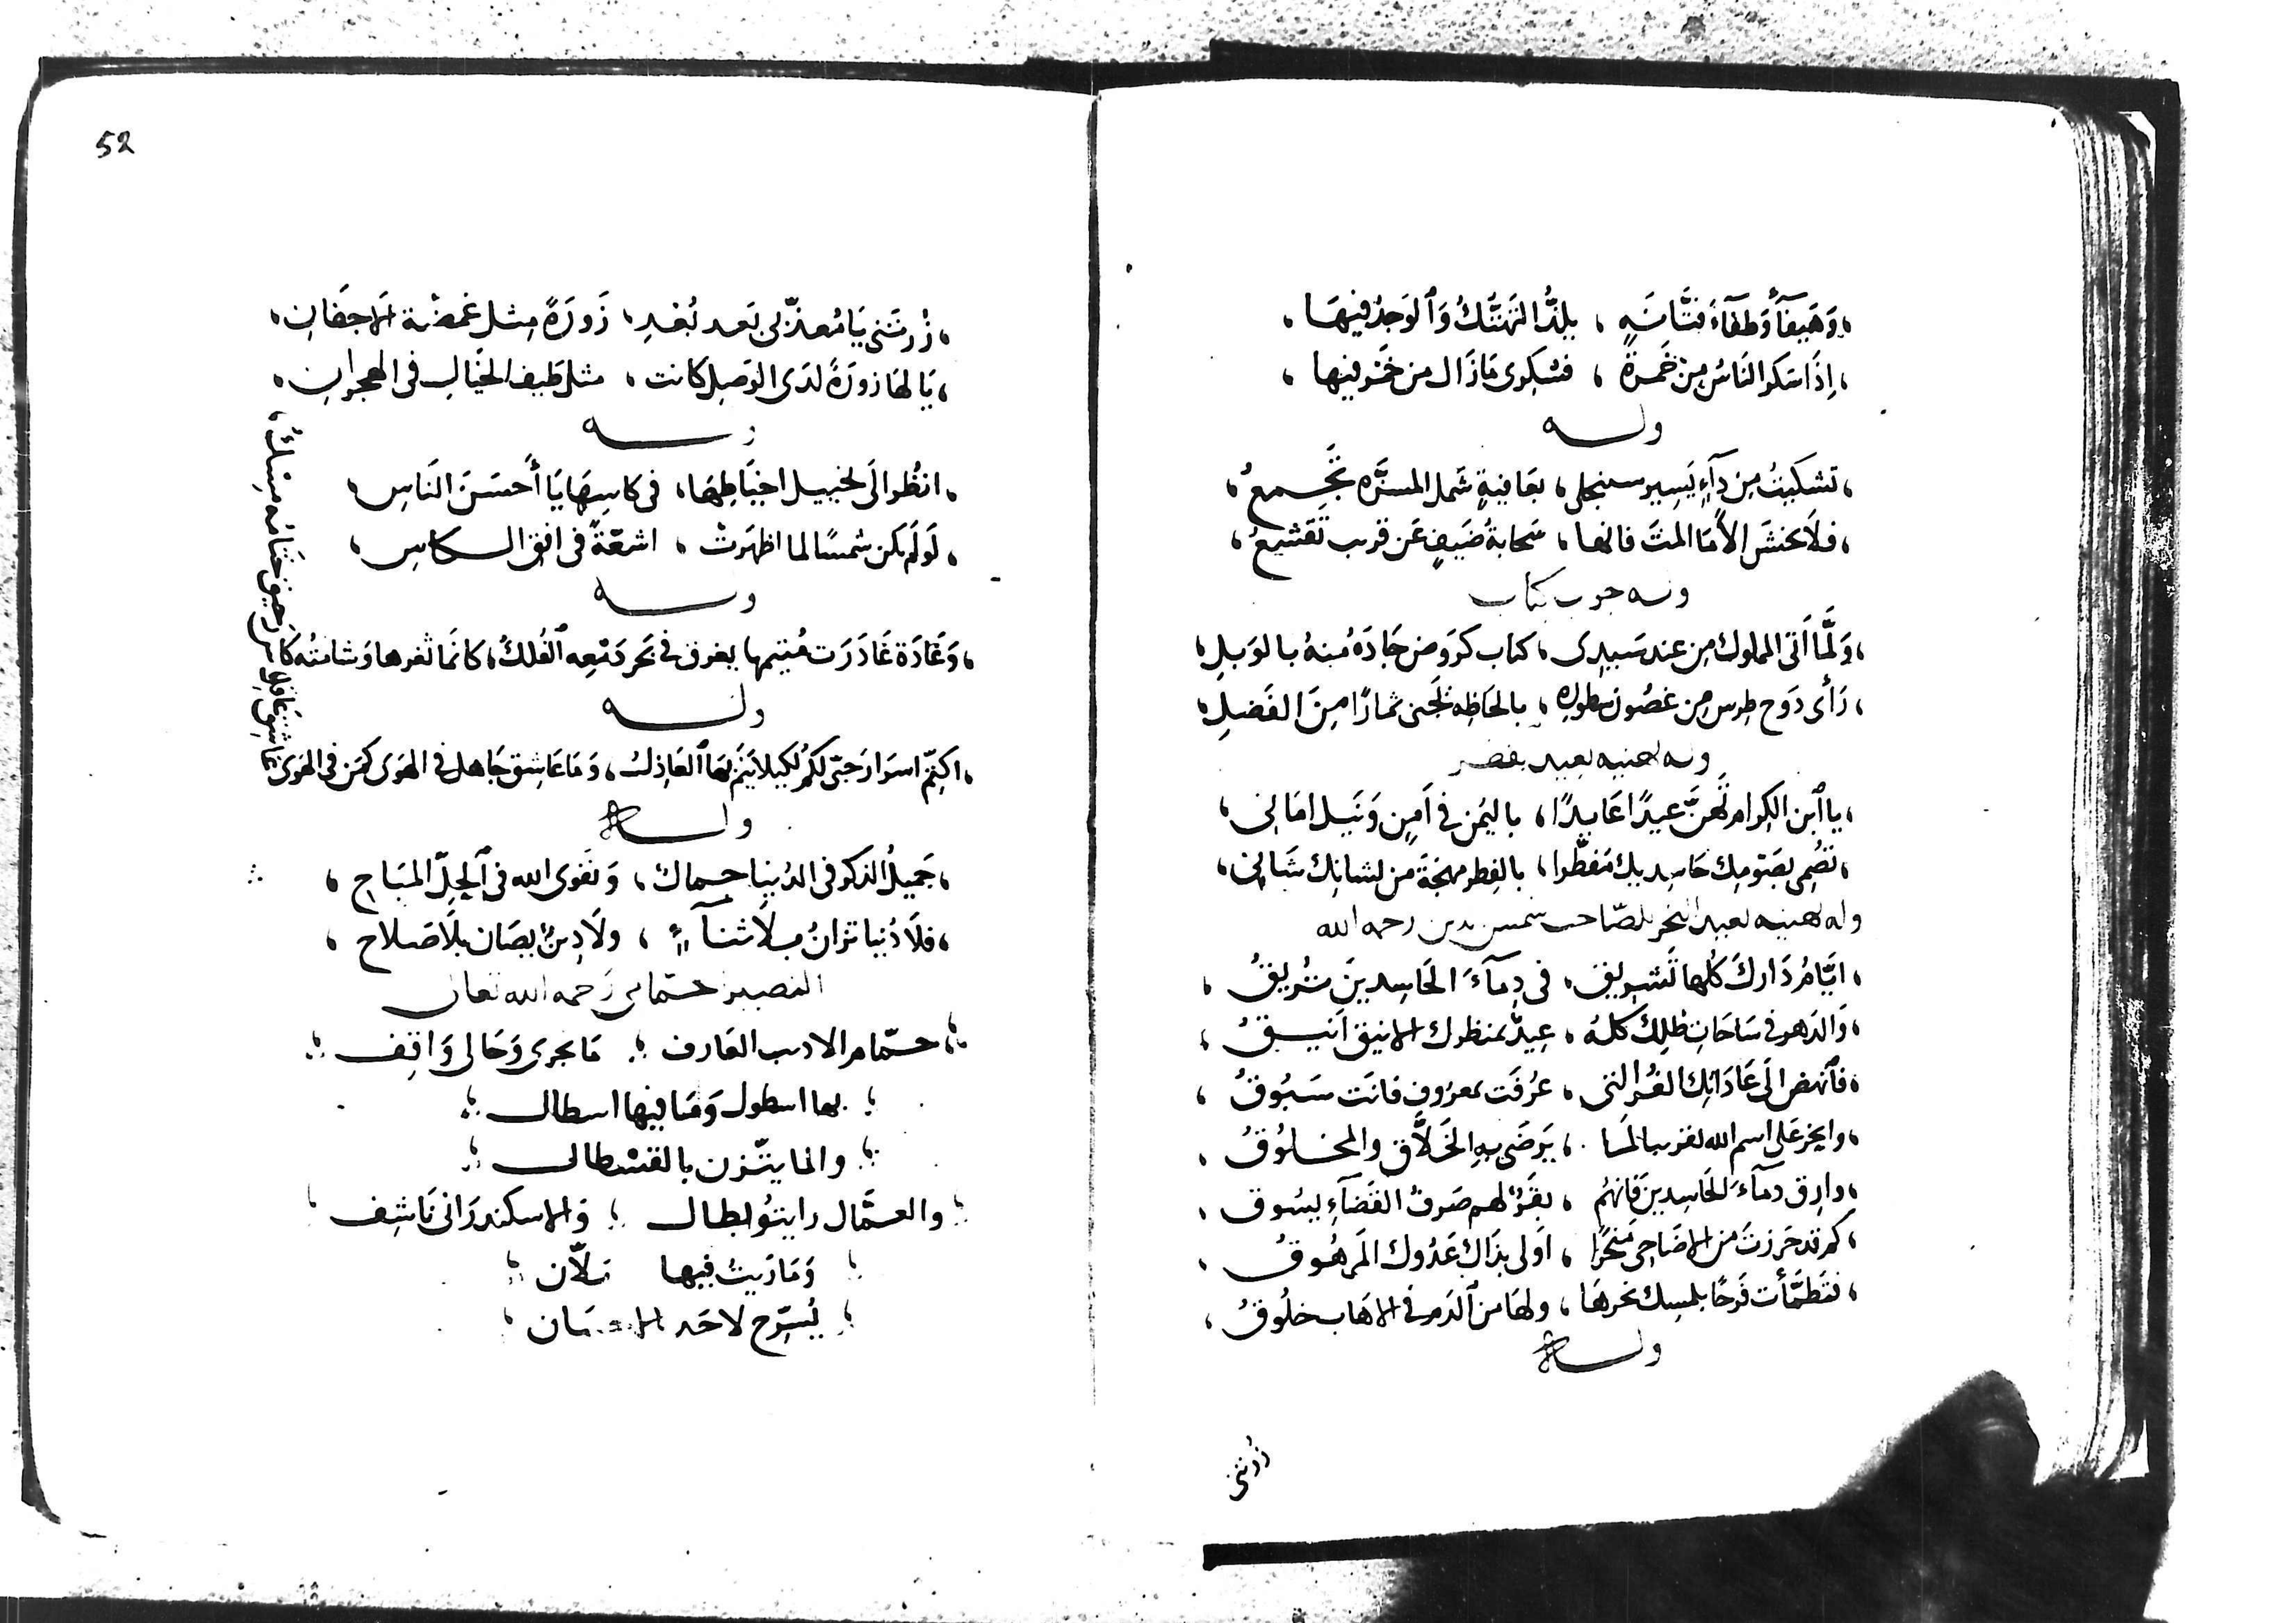 وَهَيفآءُ وَطفآءُ فتَّانَةٍ ، يلِذُّ التَهتُّكُ وَٱلوَجدُ فيهَا
اِذَا سَكِر النَاسُ مِنْ خَمرةٍ ، فسُكِرى مَا زَال من خَمر فيها
ولـــه
تشكيتُ مِن دآءٍ يَسِير سينجلى ، بعَافيةٍ شَمل المسرَّه تجمعُ
فلاَ تخشَ الاَمَا المتَ فانها ، سَحابةُ صَيفٍ عَن قريب تَقشعُ
وله جوب كتاب
وَلَمَّا اَتى المملوك مِن عند سَيدِى ، كتاب كرَوضٍ جَادَهُ مُنهُ بالوَبلِ
رَأى دَوح طرسٍ مِن غصُون سطوره ، بالحَاظه تجنى ثمارًا مِنَ الفَضلِ
وله تهنيه بعيد بفطر
يا ٱبن الكِرام تَهَنَّ عيدًا عَايدًا ، باليُمن فى اَمنٍ وَنَيل امَانى
تصُمى بصَومِك حَاسِديك مُفطّرا ، بالفِطر مهجَة من لشانك شَانى
وله تهنيه بعيد النحر للصّاحب شمس دين رحمه الله
ايَّامُ دَارك كُلها تَشريق ، فى دِمآءَ الحَاسِدينَ تُريقُ
وَالدَهر فى سَاحَاتِ ظِلِك كلهُ ، عِيدٌ بمنظرك الانيق اَنيــقُ
فٱنهض الَى عَادَاتك الغُر التى ، عُرفَت بمعرُوفٍ فانَت سَبُوقُ
وانحر عَلى اسم الله تقربا لمَا ، يَرضَى بهِ الخَلاَّق والمخـلوُقُ
وارق دمآءَ الحَاسِدينَ فانهُم ، بقَرٌ لهم صَرفُ القَضآءِ يسُوق
كم قد حَرزتَ من الاضَاحِى مَنحَرًا ، اَولى بذَاك عَدُوك المَرهُوقُ
فتَطمّأت فَرحًا بلمسِك نحرهَا ، ولهَا من ٱلدَم فى الاهَاب خلُوقُ
ولـــه
زُرتنى
52
زُرتَنى يَا مُعذّبى بَعد بُعْدٍ ، زَورَةً مِثل غمضَة الاَجفَانِ
يَا لهَا زورَةً لدَى الوَصِل كانت ، مثل طَيف الخيَالِ فى الهجرانِ
ولـــه
انظُر الَى تخييل اخيَاطِهَا ، فى كاسِهَا يَا أَحسَنَ النَاسِ
لَو لَم يكن شمسًا لما اظهَرتْ ، اشعّةً فى افق الكاسِ
ولـــه
وَغَادَة غَادَرَت مُتيمها يغرق فى بَحر دَمْعِه ٱلفُلكُ ، كانَما ثغرها وَشامتُه كاس رَحيق ختَامُه مِسْكُ
ولـــه
اكتِمّ اسرَار حَتى لكم لكيلا ينَم بهَا ٱلعَاذِلُ ، وَمَا عَاشِق جَاهل فى الهوَى كمَن فى الهَوَى عَاشِق عَاقِل
ولـــه
جَميلُ الذكر فى الدُنيا حماك ، وَتقوَى الله فى ٱلحِلّ المبَاحِ
فلاَ دُنيا تزانُ بلاَ ثنآءٍ ، ولَا دِينٌ يصَان بلَا صَلاح
النصير حمّامى رَحمه الله تعالى
حمّام الاديب العَارف ؛ مَا يجرى وَحَالى وَاقِف
بها اسطول وَمَا فيها اسطال
والما يتّزن بالقسْطال
والعمَّال رايتُو بطال ؛ وَالاسكندرَانى نَاشِف
وَمَا رَيتُ فيها بَلاّن
يُسَرّح لاحَد